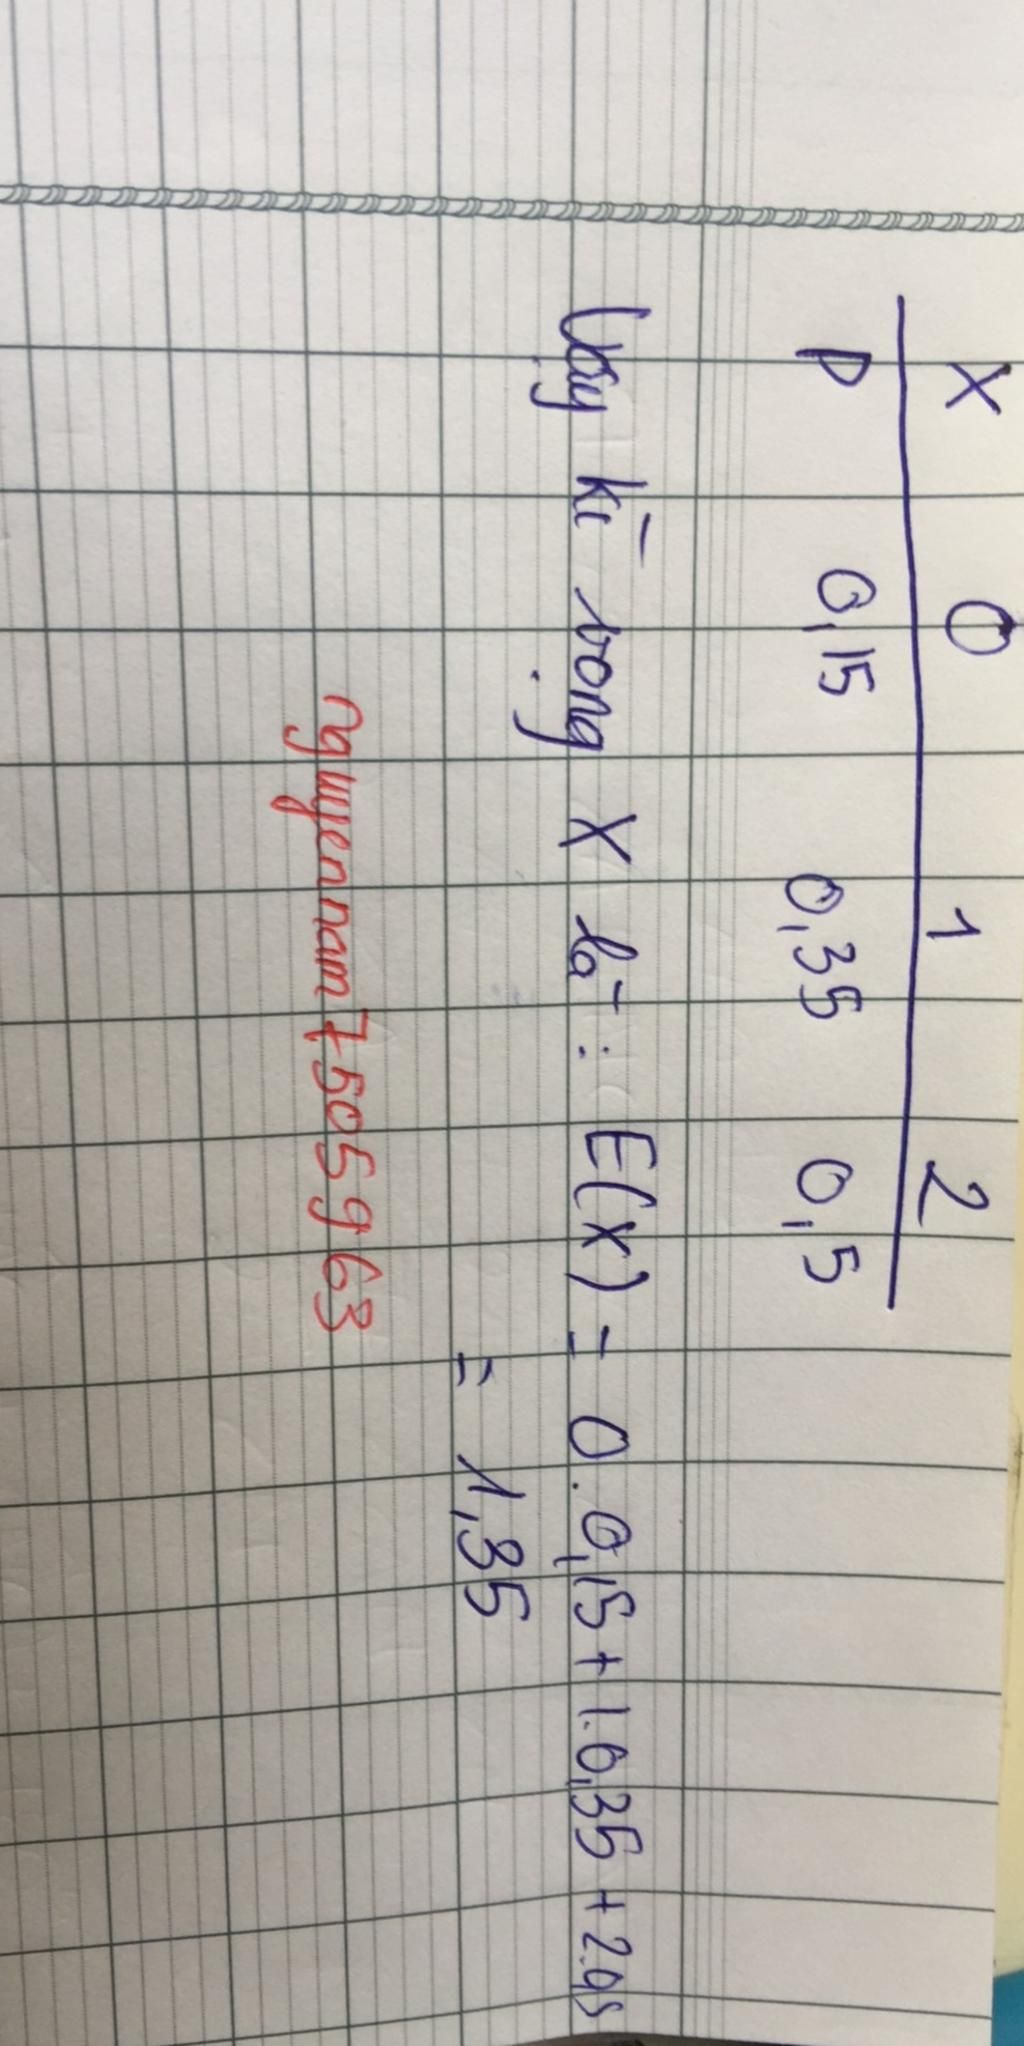 X 0 1 2
P 0,15 0,35 0,5
Vậy kì vọng X là: E(X) = 0.0,15 + 1.0,35 + 2.0,5
= 1,35
nguyennam7505963